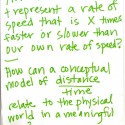 t represent a rate of
speed that is X times
faster or slower than
our own rate of speed?
→ How can a conceptual
model of distance
time
relate to the physical
world in a meaningful